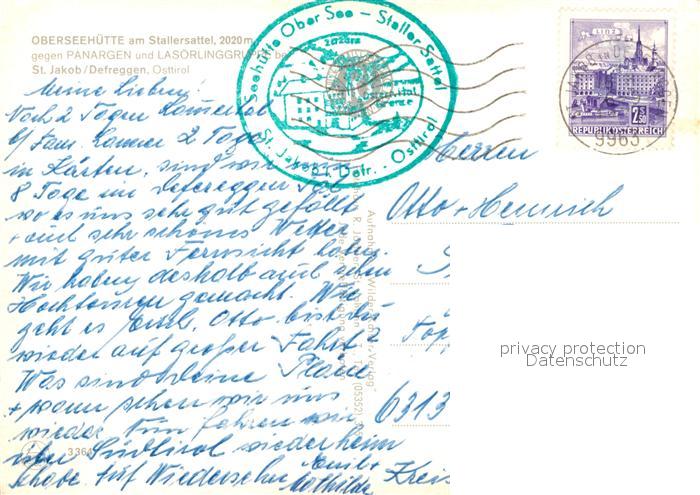 OBERSEEHÜTTE am Stallersattel, 2020 m
gegen PANARGEN und LASÖRLINGGRUPPE bei
St. Jakob/Defreggen, Osttirol
Seehütte Ober See - Staller Sattel
St. Jakob i. Defr. - Osttirol
LINZ
2.50
REPUBLIK ÖSTERREICH
9963
Meine Lieben!
Nach 2 Tagen
b/ Fam. 2 Tage
in Kärten, sind wir
8 Tage im Defereggen Tal
wo es uns sehr gut gefällt
+ auch sehr schönes Wetter
mit guter Fernsicht haben.
Wir haben deshalb auch schon
Hochtouren gemacht. Wie
geht es Euch, Otto bist du
wieder auf großer Fahrt?
Was sind deine Pläne
+ wann sehen wir uns
wieder. Nun fahren wir
über Südtirol wieder heim
Auf Wiedersehn Emil +
Mathilde
3364
Herren
Otto + Heinrich
6313
Kreis
privacy protection
Datenschutz